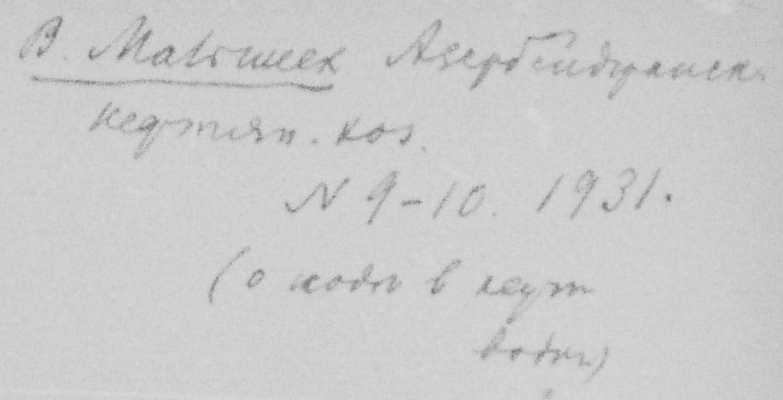 В. Азербейджанск.
нефтян. хоз.
N 9-10. 1931.
(о иоды в нефт
водах)